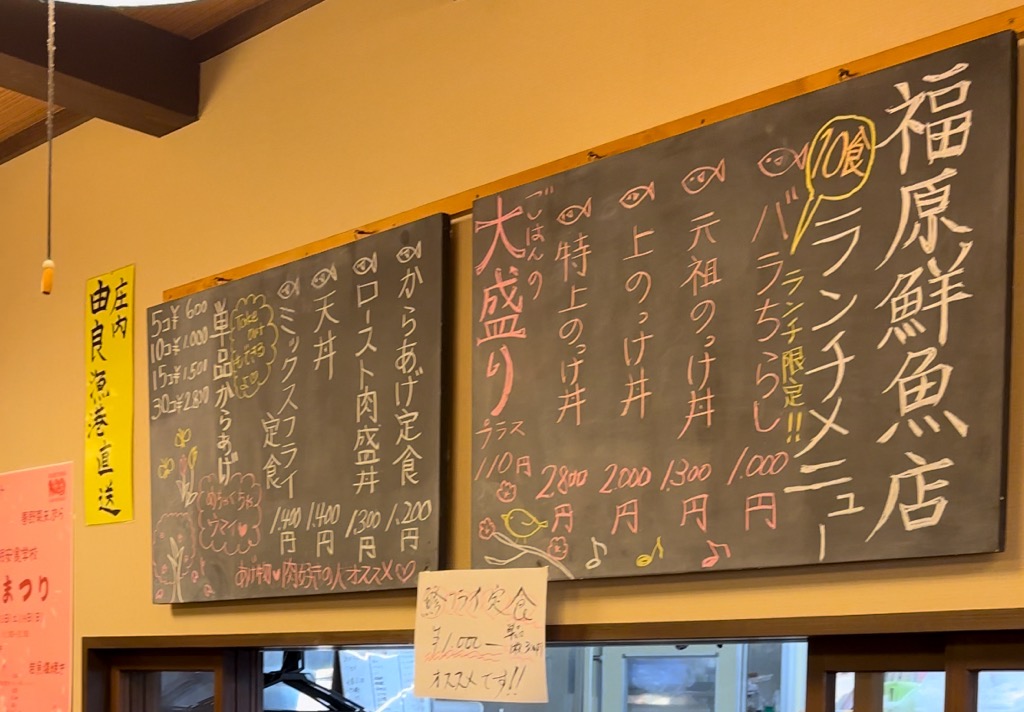 福原鮮魚店
ランチメニュー
10食
ランチ限定!!
バラちらし 1.000円
元祖のっけ丼 1.300円
上のっけ丼 2000円
特上のっけ丼 2800円
ごはんの
大盛り
プラス
110円
からあげ定食 1.200円
ロースト肉盛丼 1.300円
天丼 1.400円
ミックスフライ定食 1.400円
Take out
もできる
よ♡
単品からあげ
5コ¥600
10コ¥1.000
15コ¥1.501
30コ¥2.800
めちゃくちゃ
ウマイ♥
あげ物♥肉好きの人オススメ♡
庄内
由良漁港直送
フライ定食
¥1.000
単品
オススメです!!
まつり